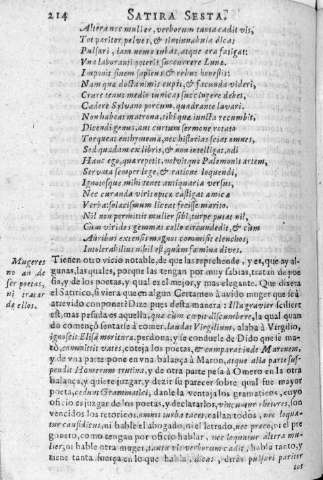 214 SATIRA SESTA.
Altera nec mulier, verborum tanta cadit vis,
Tot pariter pelves, & tintinnabula dicas
Pulsari, iam nemo tubas, atque æra fatiget:
Vna laboranti poterit succurrere Lunæ.
Imponit finem sapiens & rebus honestis:
Nam quæ docta nimis cupit, & facunda videri,
Crure tenus medio tunicas succingere debet,
Cædere Sylvano porcum, quadrante lavari.
Non habeat matrona, tibi quæ iuncta recumbit,
Dicendi genus, aut curtum sermone rotato
Torqueat enthymema, nec historias sciat omnes,
Sed quædam ex libris, & non intelligat, odi
Hanc ego, quæ repetit, volvitque Palemonis artem,
Servata semper lege, & ratione loquendi,
Ignotosque mihi tenet antiquaria versus,
Nec curanda viris opicæ castigat amicæ
Verba: solæcismum liceat fecisse marito.
Nil non permittit mulier sibi, turpe putat nil,
Cum virides gemmas collo circundedit, & cum
Auribus extensis magnos commisit elenchos,
Intolerabilius nihil est, quàm fæmina dives.
Mugeres
no an de
ser poetas,
ni tratar
de ellos.
Tienen otro vicio notable, de que las reprehende, y es, que ay al-
gunas, las quales, porque las tengan por muy sabias, tratan de poe
sia, y de los poetas, y qual es el mejor, y mas elegante. Que dixera
el Satirico, si viera que en algun Certamen à avido muger que se à
atrevido componer? Dize pues desta manera: Illa gravior scilicet
est, mas pesada es aquella, quæ cùm cœpit discumbere, la qual quan
do començò sentarse à comer, laudat Virgilium, alaba à Virgilio,
ignoscit Elisæ morituræ, perdona, y se conduele de Dido que se ma-
tò, committit vates, coteja los poetas, & comparat inde Maronem,
y de vna parte pone en vna balança à Maron, atque alia parte sus-
pendit Homerum trutina, y de otra parte pesa à Omero en la otra
balança, y quiere juzgar, y dezir su parecer sobre qual fue mayor
poeta, cedunt Grammatici, danle la ventaja los gramaticos, cuyo
oficio es juzgar de los poetas, y declararlos, vincuntur rhetores, son
vencidos los retoricos, omnis turba tacet, callan todos, nec loqua-
tur causidicus, ni hable el abogado, ni el letrado, nec præco, ni el pre
gonero, como tengan por oficio hablar, nec loquatur altera mu-
lier, ni hable otra muger, tanta vis verborum cadit, habla tanto, y
tiene tanta fuerça en lo que habla, dicas, diràs pulsari pariter
tot